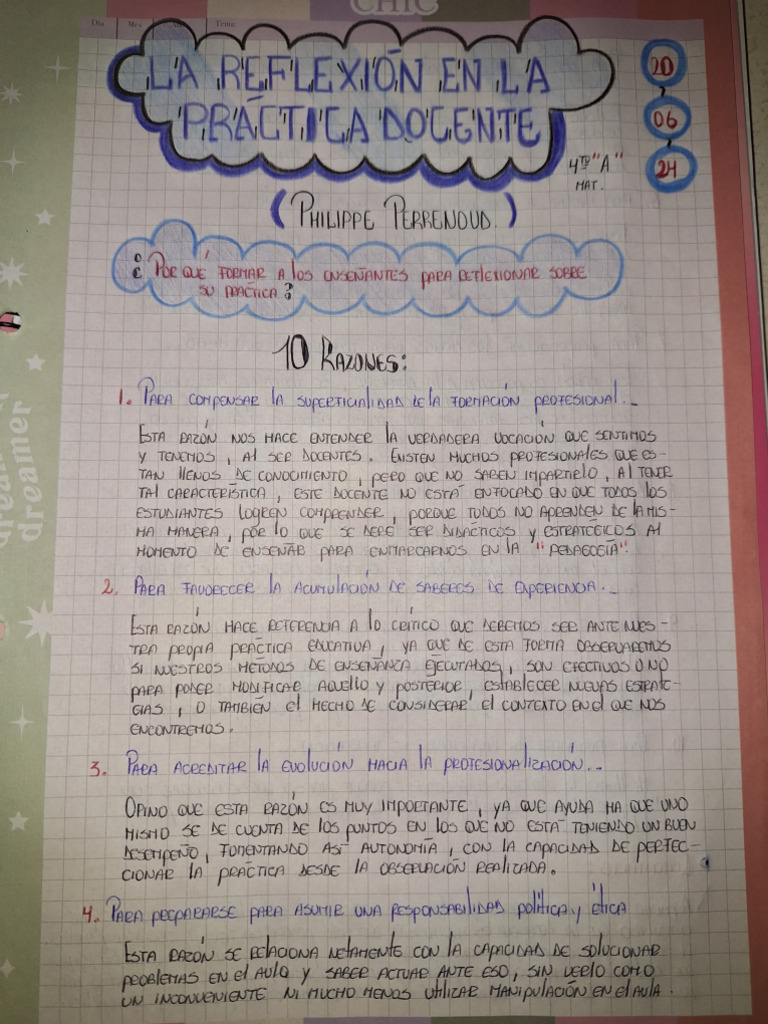 CHIC
Día Mes Tema:
LA REFLEXIÓN EN LA
PRÁCTICA DOCENTE
20
06
24
4to "A"
MAT.
(PHILIPPE PERRENOUD.)
¿POR QUÉ FORMAR A los ENSEÑANTES PARA REFLEXIONAR SOBRE
SU PRÁCTICA?
10 RAZONES:
1. PARA COMPENSAR lA SUPERFICIALIDAD DE lA FORMACIÓN PROFESIONAL._
ESTA RAZÓN NOS HACE ENTENDER lA VERDADERA VOCACIÓN QUE SENTIMOS
Y TENEMOS, Al SER DOCENTES. EXISTEN MUCHOS PROFESIONALES QUE ES-
TAN llENOS DE CONOCIMIENTO, PERO QUE NO SABEN IMPARTIRLO, Al TENER
TAl CARACTERÍSTICA, ESTE DOCENTE NO ESTÁ ENFOCADO EN QUE TODOS lOS
ESTUDIANTES LOGREN COMPRENDER, PORQUE TODOS NO APRENDEN DE lA MIS-
MA MANERA, POR lO QUE SE DEBE SER DIDÁCTICOS Y ESTRATÉGICOS Al
MOMENTO DE ENSEÑAR PARA ENMARCARNOS EN lA "PEDAGOGÍA".
2. PARA FAVORECER lA ACUMULACIÓN DE SABERES DE EXPERIENCIA._
ESTA RAZÓN HACE REFERENCIA A lO CRÍTICO QUE DEBEMOS SER ANTE NUES-
TRA PROPIA PRÁCTICA EDUCATIVA, YA QUE DE ESTA FORMA OBSERVAREMOS
SI NUESTROS MÉTODOS DE ENSEÑANZA EJECUTADOS, SON EFECTIVOS O NO
PARA PODER MODIFICAR AQUELLO Y POSTERIOR, ESTABLECER NUEVAS ESTRATE-
GIAS, O TAMBIÉN El HECHO DE CONSIDERAR El CONTEXTO EN El QUE NOS
ENCONTREMOS.
3. PARA ACREDITAR lA EVOLUCIÓN HACIA lA PROFESIONALIZACIÓN._
OPINO QUE ESTA RAZÓN ES MUY IMPORTANTE, YA QUE AYUDA HA QUE UNO
MISMO SE DE CUENTA DE lOS PUNTOS EN lOS QUE NO ESTÁ TENIENDO UN BUEN
DESEMPEÑO, FOMENTANDO ASÍ AUTONOMÍA, CON lA CAPACIDAD DE PERFEC-
CIONAR lA PRÁCTICA DESDE lA OBSERVACIÓN REALIZADA.
4. PARA PREPARARSE PARA ASUMIR UNA RESPONSABILIDAD POLÍTICA Y ÉTICA
ESTA RAZÓN SE RELACIONA NETAMENTE CON lA CAPACIDAD DE SOLUCIONAR
PROBLEMAS EN El AULA Y SABER ACTUAR ANTE ESO, SIN VERLO COMO
UN INCONVENIENTE NI MUCHO MENOS UTILIZAR MANIPULACIÓN EN El AULA.
dreamer